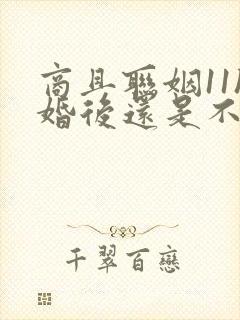 商且聯姻11月
婚後還是不
千翠百戀